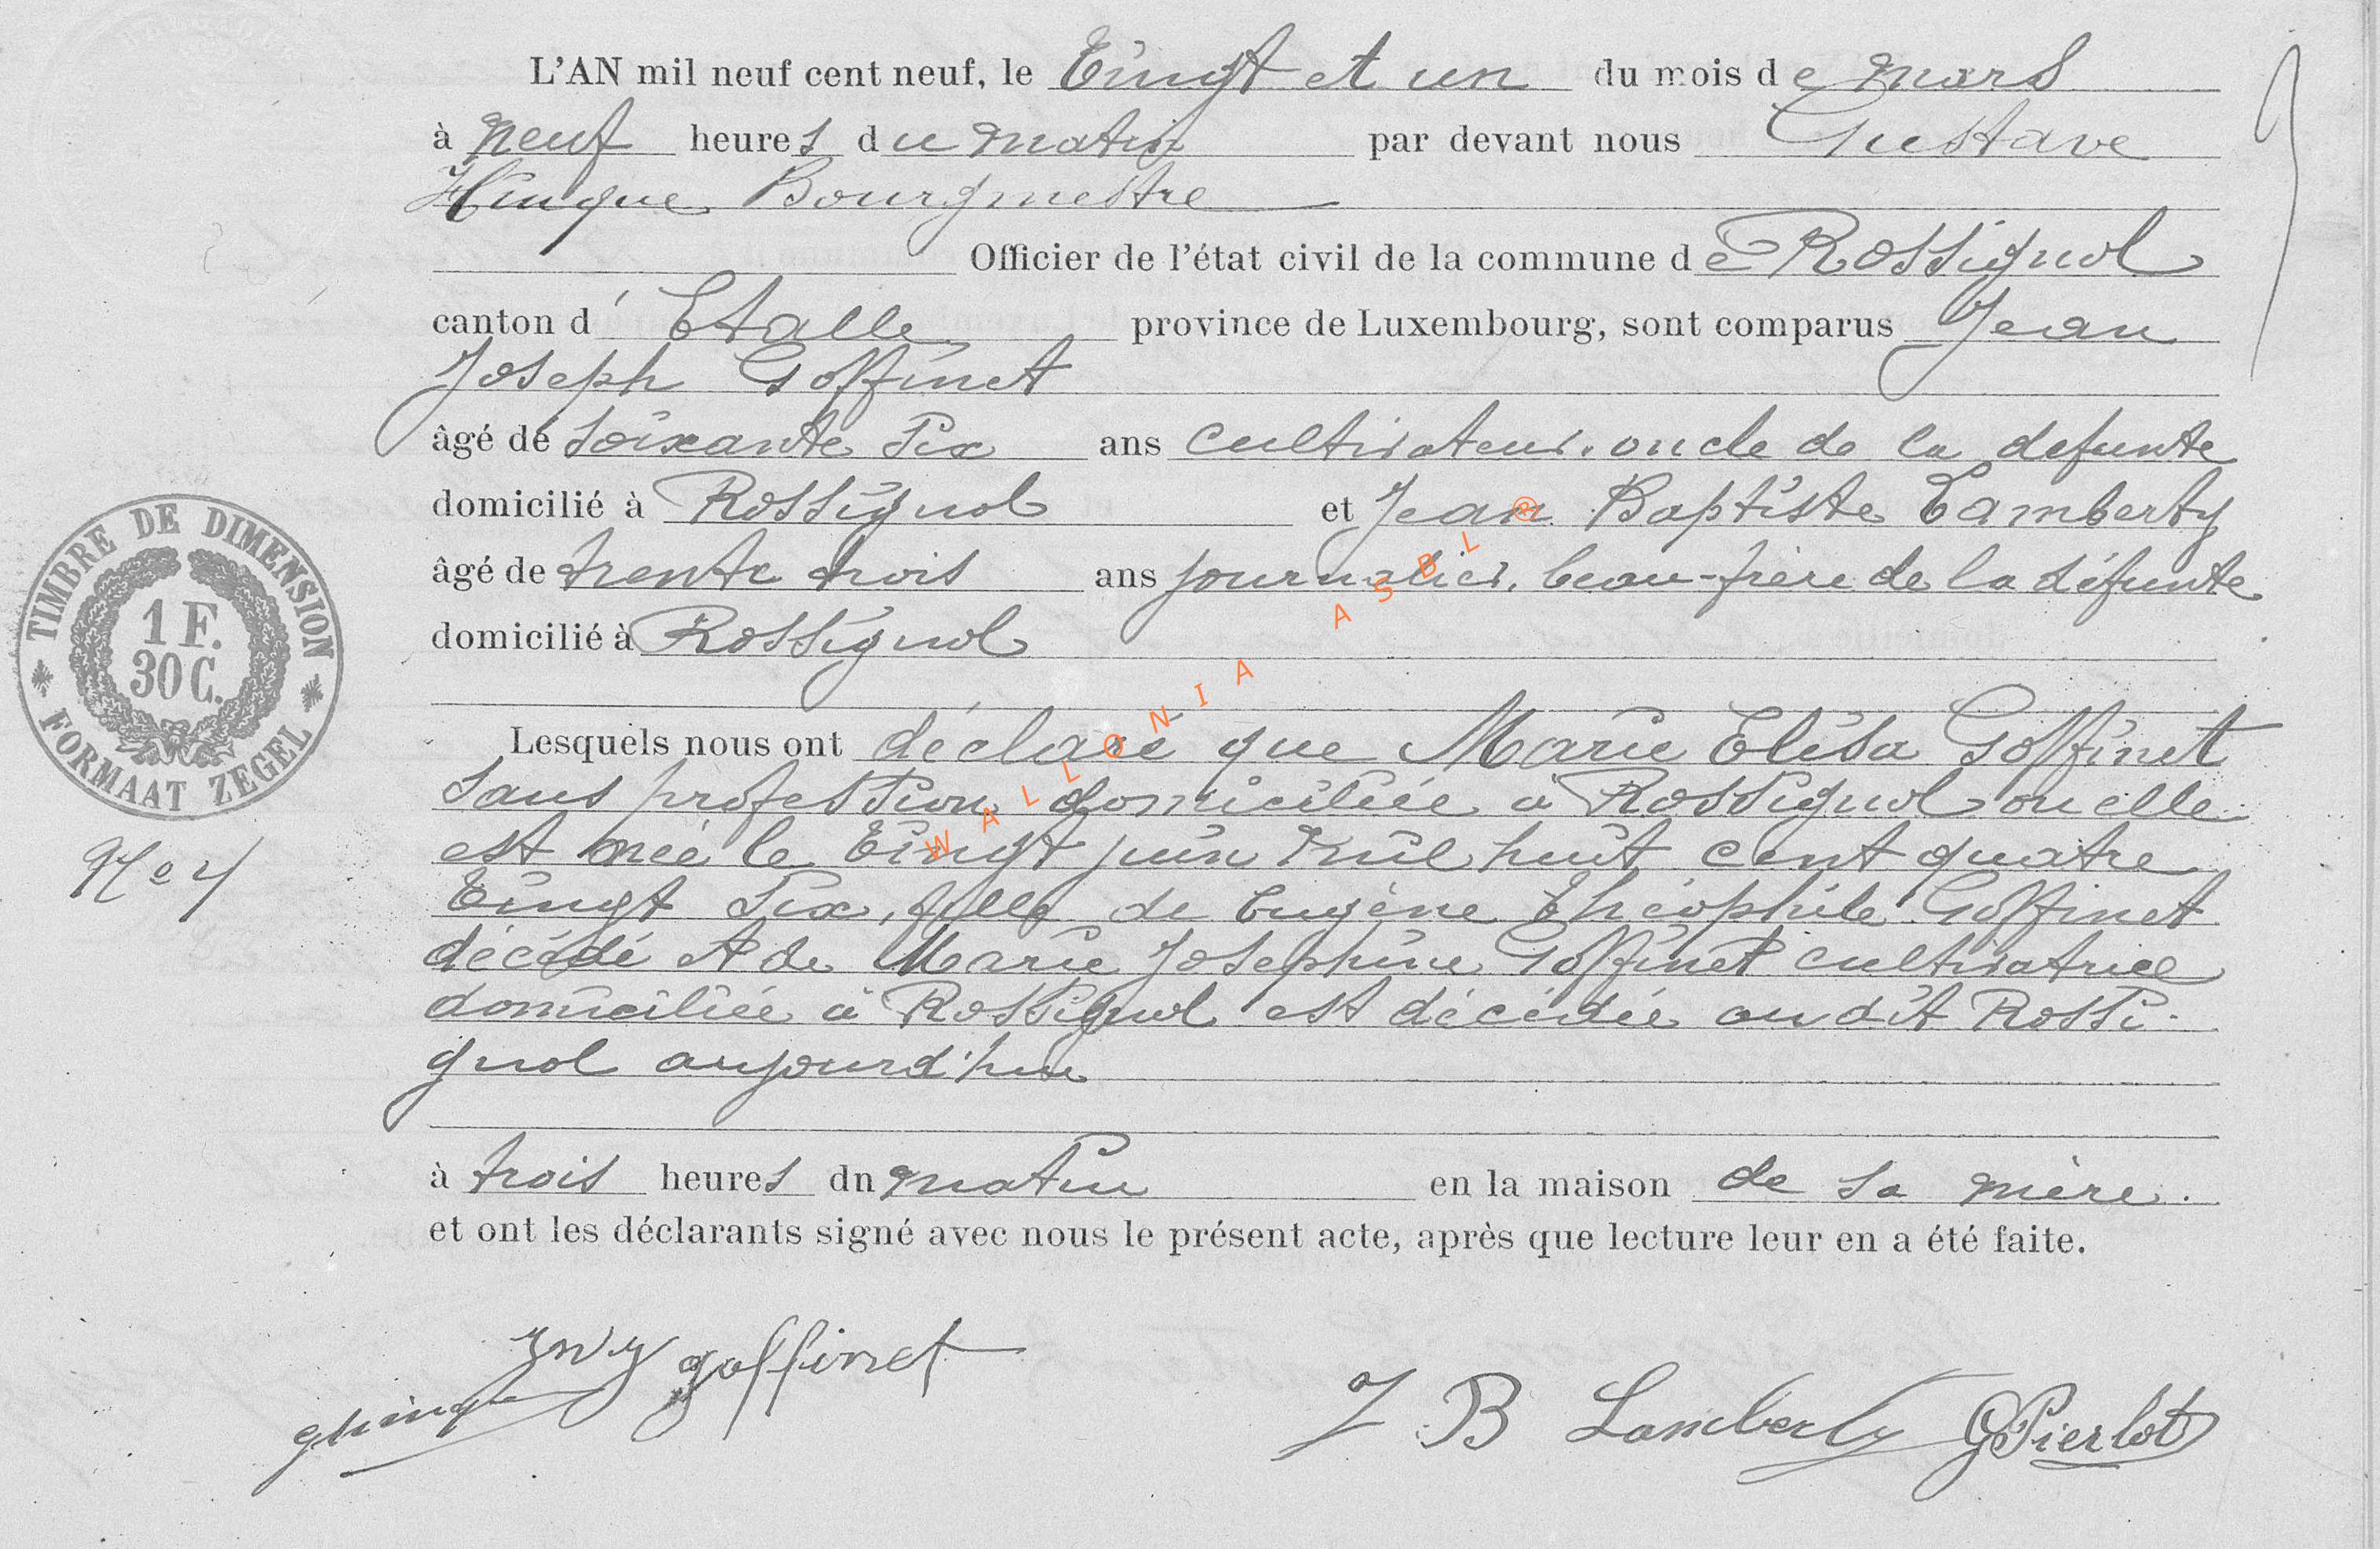 L'AN mil neuf cent neuf, le Vingt et un du mois de Mars
à Neuf heures du Matin par devant nous Gustave
Hinque Bourgmestre
Officier de l'état civil de la commune de Rossignol
canton d'Etalle province de Luxembourg, sont comparus Jean
Joseph Goffinet
âgé de soixante six ans cultivateur. oncle de la defunte
domicilié à Rossignol et Jean Baptiste Lamberty
âgé de trente trois ans journalier, beau-frère de la défunte
domicilié à Rossignol
Lesquels nous ont déclaré que Marie Elisa Goffinet
sans profession domiciliée à Rossignol ou elle
est née le Vingt juin Mil huit cent quatre
Vingt six, fille de Eugène Théophile Goffinet
décédé et de Marie Josephine Goffinet cultivatrice
domiciliée à Rossignol est décédée au dit Rossi-
gnol aujourd'hui
à trois heures dn matin en la maison de sa mère.
et ont les déclarants signé avec nous le présent acte, après que lecture leur en a été faite.
goffinet
ghinque
J B Lamberty GPierlot
TIMBRE DE DIMENSION
1 F.
30 C.
FORMAAT ZEGEL
No 4
WALLONIA ASBL ®